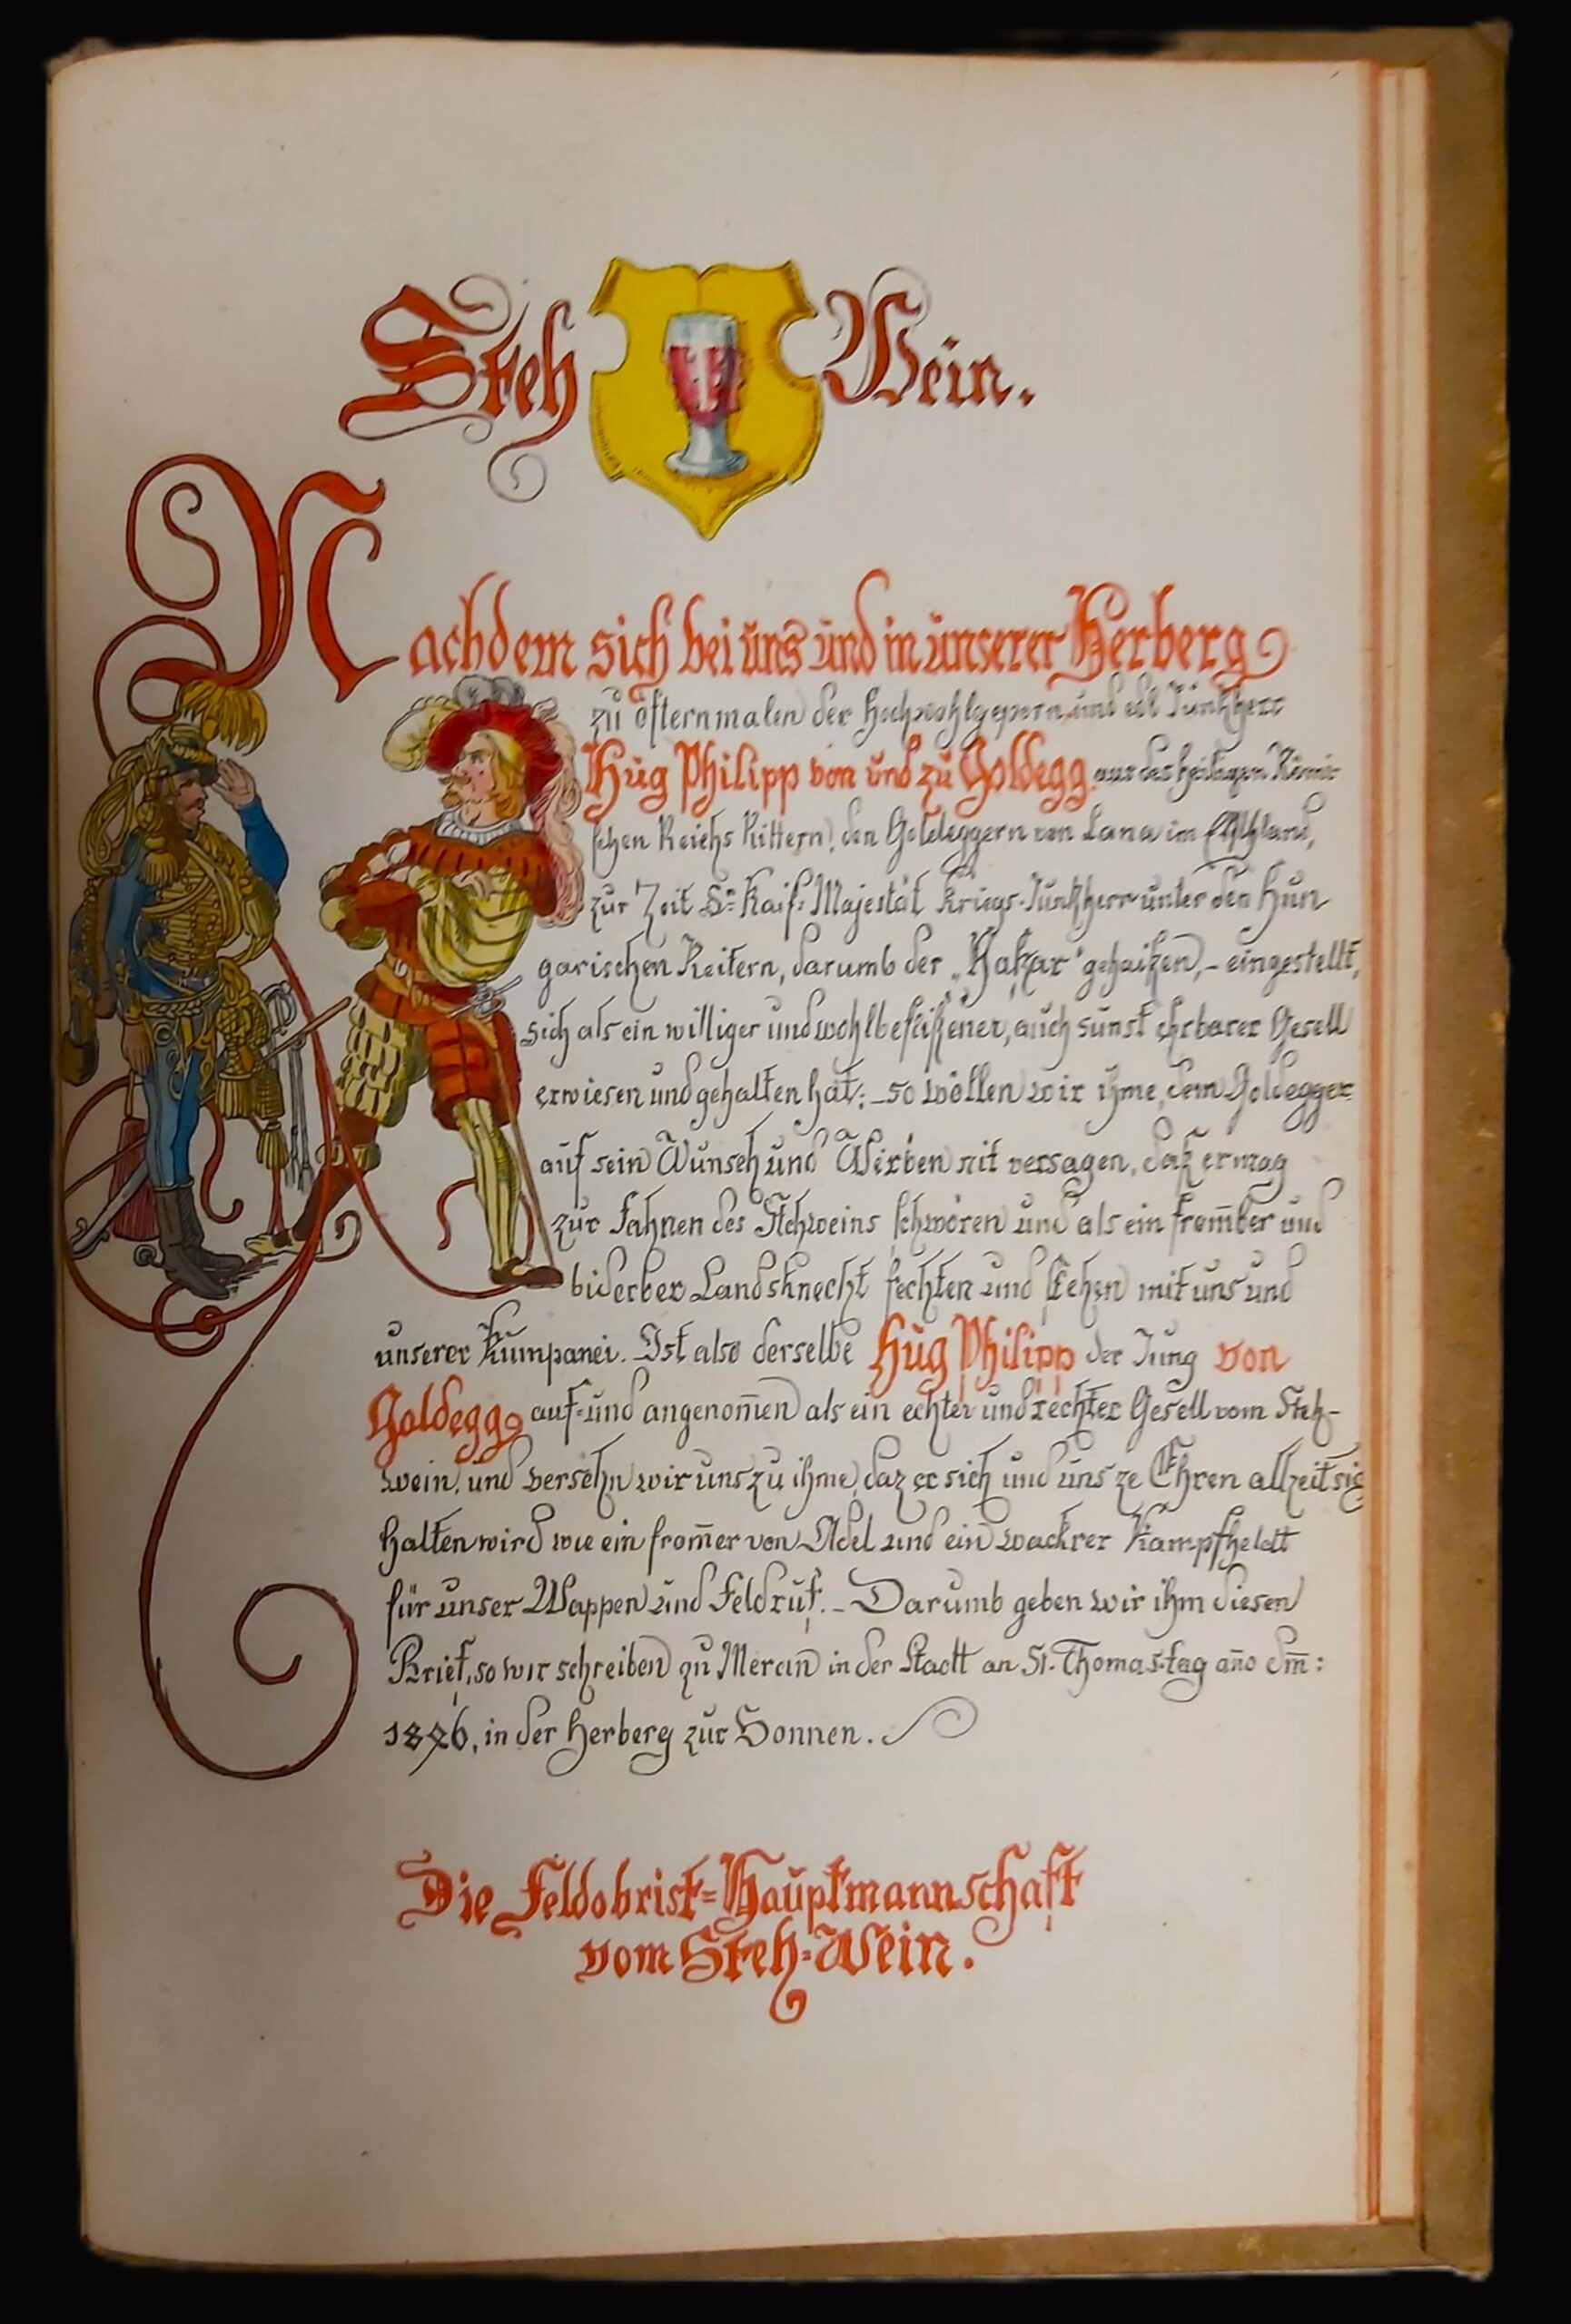 Steh Wein.
Nachdem sich bei uns und in unserer Herberg
zu öfternmalen der hochwohlgeporn und edl Junkherr
Hug Philipp von und zu Goldegg aus des heiligen Römi-
schen Reichs Rittern, den Goldeggern von Lana im Etschland,
zur Zeit Sr. Kais: Majestät Kriegs-Junkherr unter den Hun
garischen Reitern, darumb der „Hußar" gehaißen, - eingestellt,
sich als ein williger und wohlbeflißener, auch sunst ehrbarer Gesell
erwiesen und gehalten hat: - so wöllen wir ihme, dem Goldegger
auf sein Wunsch und Werben nit versagen, daß er mag
zur Fahnen des Stehweins schwören und als ein from̄ber und
biderber Landsknecht fechten und stehen mit uns und
unserer Kumpanei. Ist also derselbe Hug Philipp der Jung von
Goldegg auf- und angenom̄en als ein echter und rechter Gesell vom Steh-
wein, und versehn wir uns zu ihme, daz er sich und uns ze Ehren allzeit sig
halten wird wie ein from̄er von Adel und ein wackrer Kampfheldt
für unser Wappen und Feldruf. - Darumb geben wir ihm diesen
Brief, so wir schreiben zu Meran in der Stadt an St. Thomas-tag an̄o dm̄:
1896, in der Herberg zur Sonnen.
Die Feldobrist=Hauptmannschaft
vom Steh=Wein.